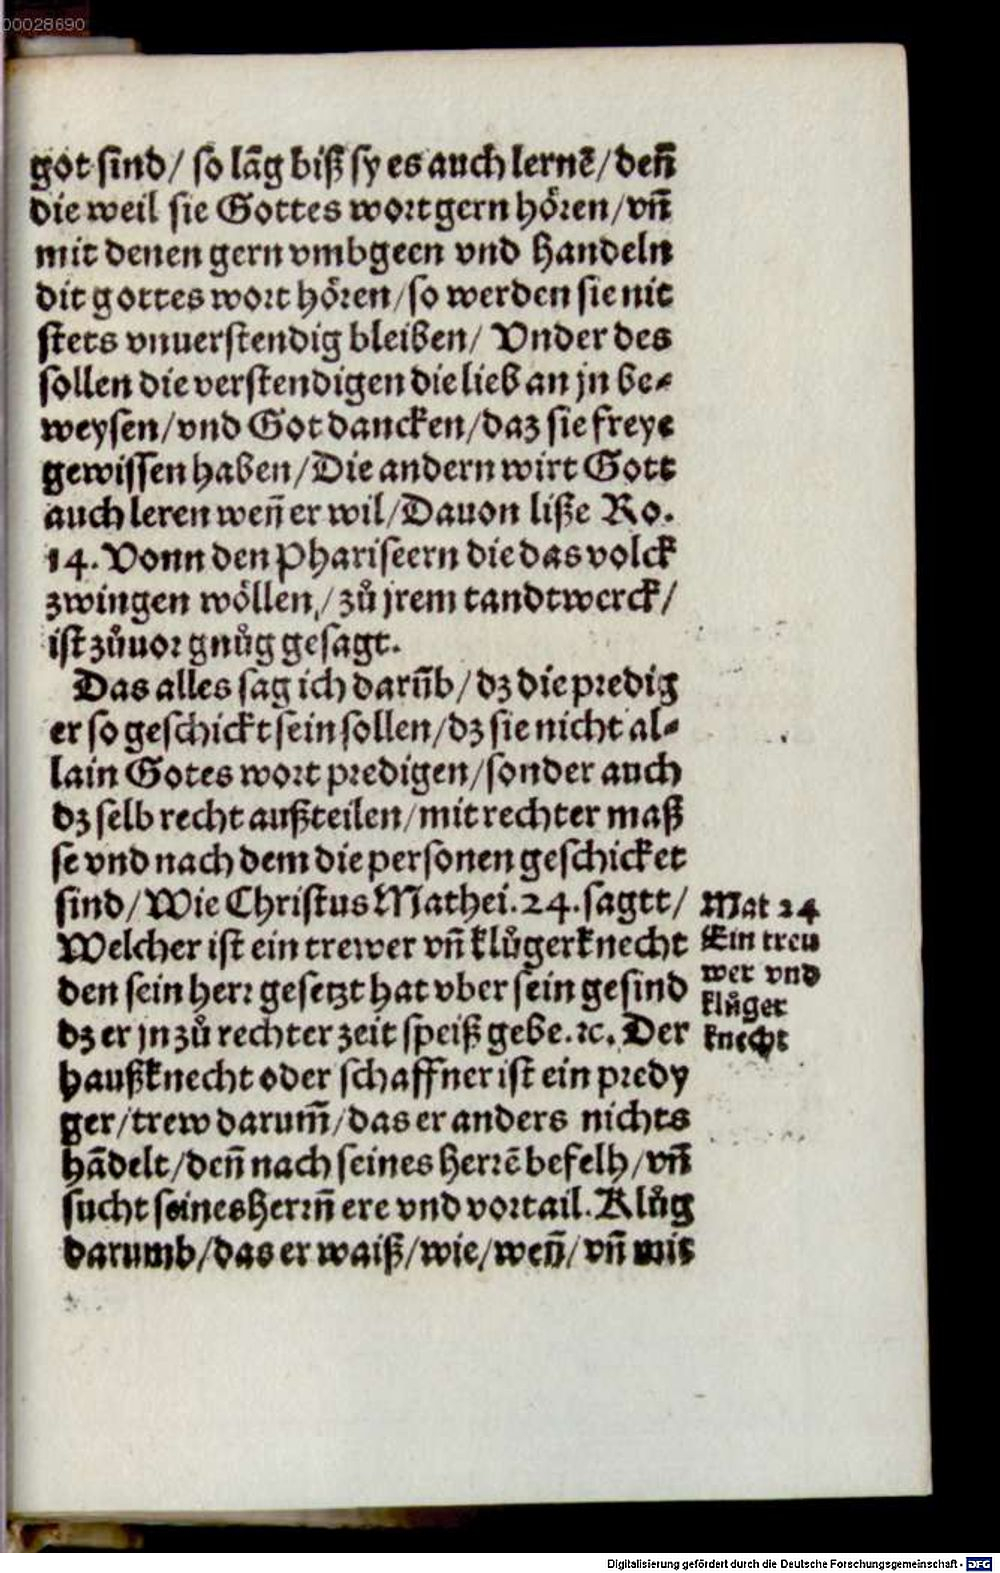 00028690
got sind/ so lāg biß sy es auch lernē/ deñ
die weil sie Gottes wort gern hören/ vñ
mit denen gern vmbgeen vnd handeln
dit gottes wort hören/ so werden sie nit
stets vnuerstendig bleiben/ Vnder des
sollen die verstendigen die lieb an jn be⸗
weysen/ vnd Got dancken/ daz sie freye
gewissen haben/ Die andern wirt Gott
auch leren weñ er wil/ Dauon liße Ro.
14. Vonn den Phariseern die das volck
zwingen wöllen/ zů jrem tandtwerck/
ist zůuor gnůg gesagt.
Das alles sag ich darũb/ dz die predig
er so geschickt sein sollen/ dz sie nicht al⸗
lain Gotes wort predigen/ sonder auch
dz selb recht außteilen/ mit rechter maß
se vnd nach dem die personen geschicket
sind/ Wie Christus Mathei. 24. sagtt/
Welcher ist ein trewer vñ klůger knecht
den sein herr gesetzt hat vber sein gesind
dz er jn zů rechter zeit speiß gebe. ꝛc. Der
haußknecht oder schaffner ist ein predy
ger/ trew darum̄/ das er anders nichts
hādelt/ deñ nach seines herrē befelh/ vñ
sucht seines herrñ ere vnd vortail. Klůg
darumb/ das er waiß/ wie/ weñ/ vñ mit
Mat 24
Ein treu
wer vnd
klůger
knecht
Digitalisierung gefördert durch die Deutsche Forschungsgemeinschaft - DFG